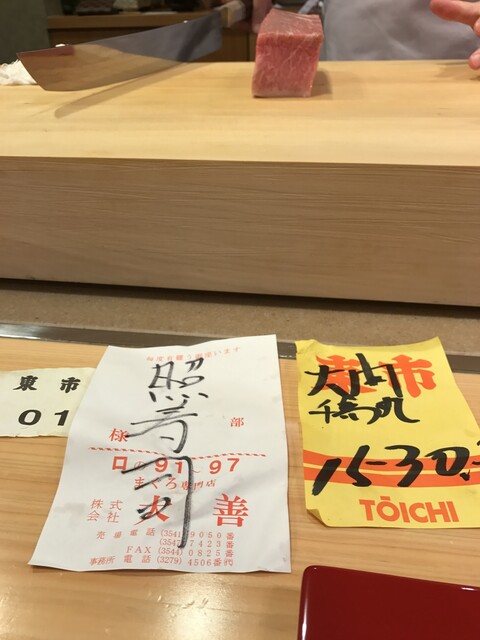 東市
01
毎度有難う御座います
照寿司
様
部
ロの91〜97
まぐろ専門店
株式会社 大善
売場電話 (3541)9050番
(3547)7423番
FAX (3544)0825番
事務所電話 (3279)4506番代
東市
大間
15-30
TŌICHI